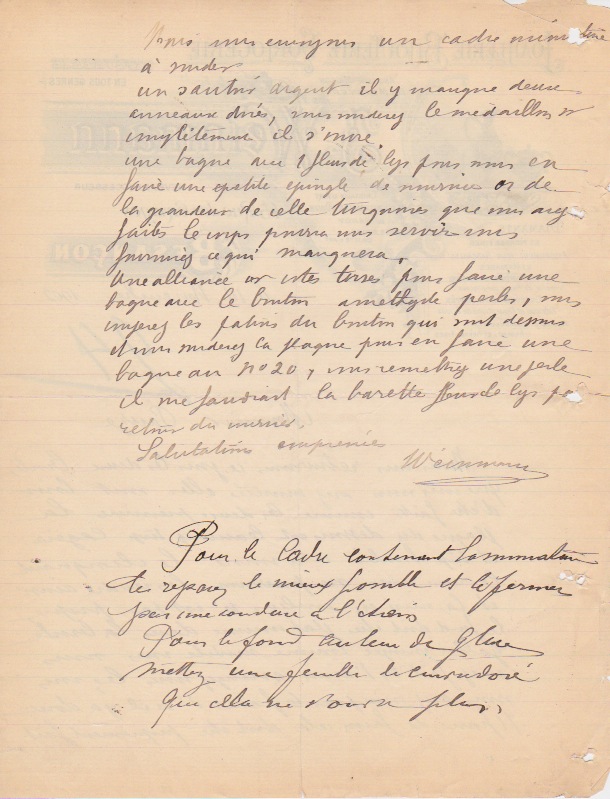 Nous vous envoyons un cadre miniature
à souder
un sautoir argent il y manque deux
anneaux dorés, vous souderez le médaillon or
complètement il s'ouvre
une bague avec 1 fleur de lys pour nous en
faire une petite épingle de nourrice or de
la grandeur de celle turquoises que vous avez
faites le corps pourra vous servir vous
fournirez ce qui manquera,
Une alliance or et des roses pour faire une
bague avec le bouton améthyste perles, vous
couperez les patins du bouton qui sont dessous
et vous souderez la plaque pour en faire une
bague au No 20, vous remettrez une perle
il me faudrait la barette fleur de lys par
retour du courrier.
Salutations empressées
Weinmann
Pour le Cadre contenant la miniature
le mieux possible et le fermer
par une soudure à l'étain
Pour le fond au lieu de glace
mettez une feuille de cuivre doré
que cela ne s'ouvre plus,